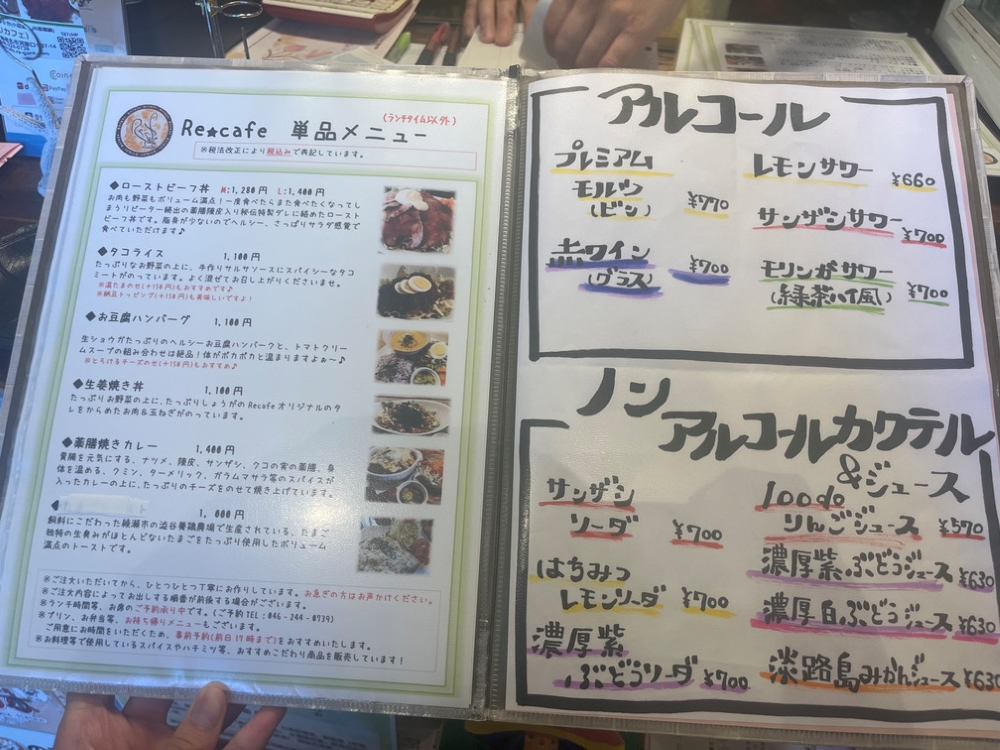 Re★cafe 単品メニュー
(ランチタイム以外)
※税法改正により税込みで表記しています。
◆ローストビーフ丼 M:1,280円 L:1,400円
お肉も野菜もボリューム満点!一度食べたらまた食べたくなってし
まうリピーター続出の薬膳陳皮入り秘伝特製ダレに絡めたロースト
ビーフ丼です。脂身が少ないのでヘルシー、さっぱりサラダ感覚で
食べていただけます♪
◆タコライス 1,100円
たっぷりなお野菜の上に、手作りサルサソースにスパイシーなタコ
ミートがのっています。よく混ぜてお召し上がりくださいませ。
※温たまのせ(+150円)もおすすめです♪
※納豆トッピング(+150円)も美味しいですよ!
◆お豆腐ハンバーグ 1,100円
生ショウガたっぷりのヘルシーお豆腐ハンバーグと、トマトクリー
ムスープの組み合わせは絶品!体がポカポカと温まりますよぉ~♪
※とろけるチーズのせ(+150円)もおすすめ♪
◆生姜焼き丼 1,100円
たっぷりお野菜の上に、たっぷりしょうがのRecafeオリジナルのタ
レをからめたお肉&玉ねぎがのっています。
◆薬膳焼きカレー 1,400円
胃腸を元気にする、ナツメ、陳皮、サンザシ、クコの実の薬膳、身
体を温める、クミン、ターメリック、ガラムマサラ等のスパイスが
入ったカレーの上に、たっぷりのチーズをのせて焼き上げています。
1,000円
飼料にこだわった綾瀬市の澁谷養鶏農場で生産されている、たまご
独特の生臭みがほとんどないたまごをたっぷり使用したボリューム
満点のトーストです。
※ご注文いただいてから、ひとつひとつ丁寧にお作りしています。お急ぎの方はお声かけください。
※ご注文内容によってお出しする順番が前後する場合がございます。
※ランチ時間等、お席のご予約承り中です。(ご予約TEL:046-244-0739)
※プリン、お弁当等、お持ち帰りメニューもございます。
ご用意にお時間をいただくため、事前予約(前日17時まで)をおすすめいたします。
※お料理等で使用しているスパイスやハチミツ等、おすすめこだわり商品を販売しています!
アルコール
プレミアム
モルツ
(ビン) ¥770
赤ワイン
(グラス) ¥700
レモンサワー ¥660
サンザシサワー ¥700
モリンガサワー
(緑茶ハイ風) ¥700
ノン
アルコールカクテル
&ジュース
サンザシ
ソーダ ¥700
はちみつ
レモンソーダ ¥700
濃厚紫
ぶどうソーダ ¥700
100%
りんごジュース ¥570
濃厚紫ぶどうジュース ¥630
濃厚白ぶどうジュース ¥630
淡路島みかんジュース ¥630